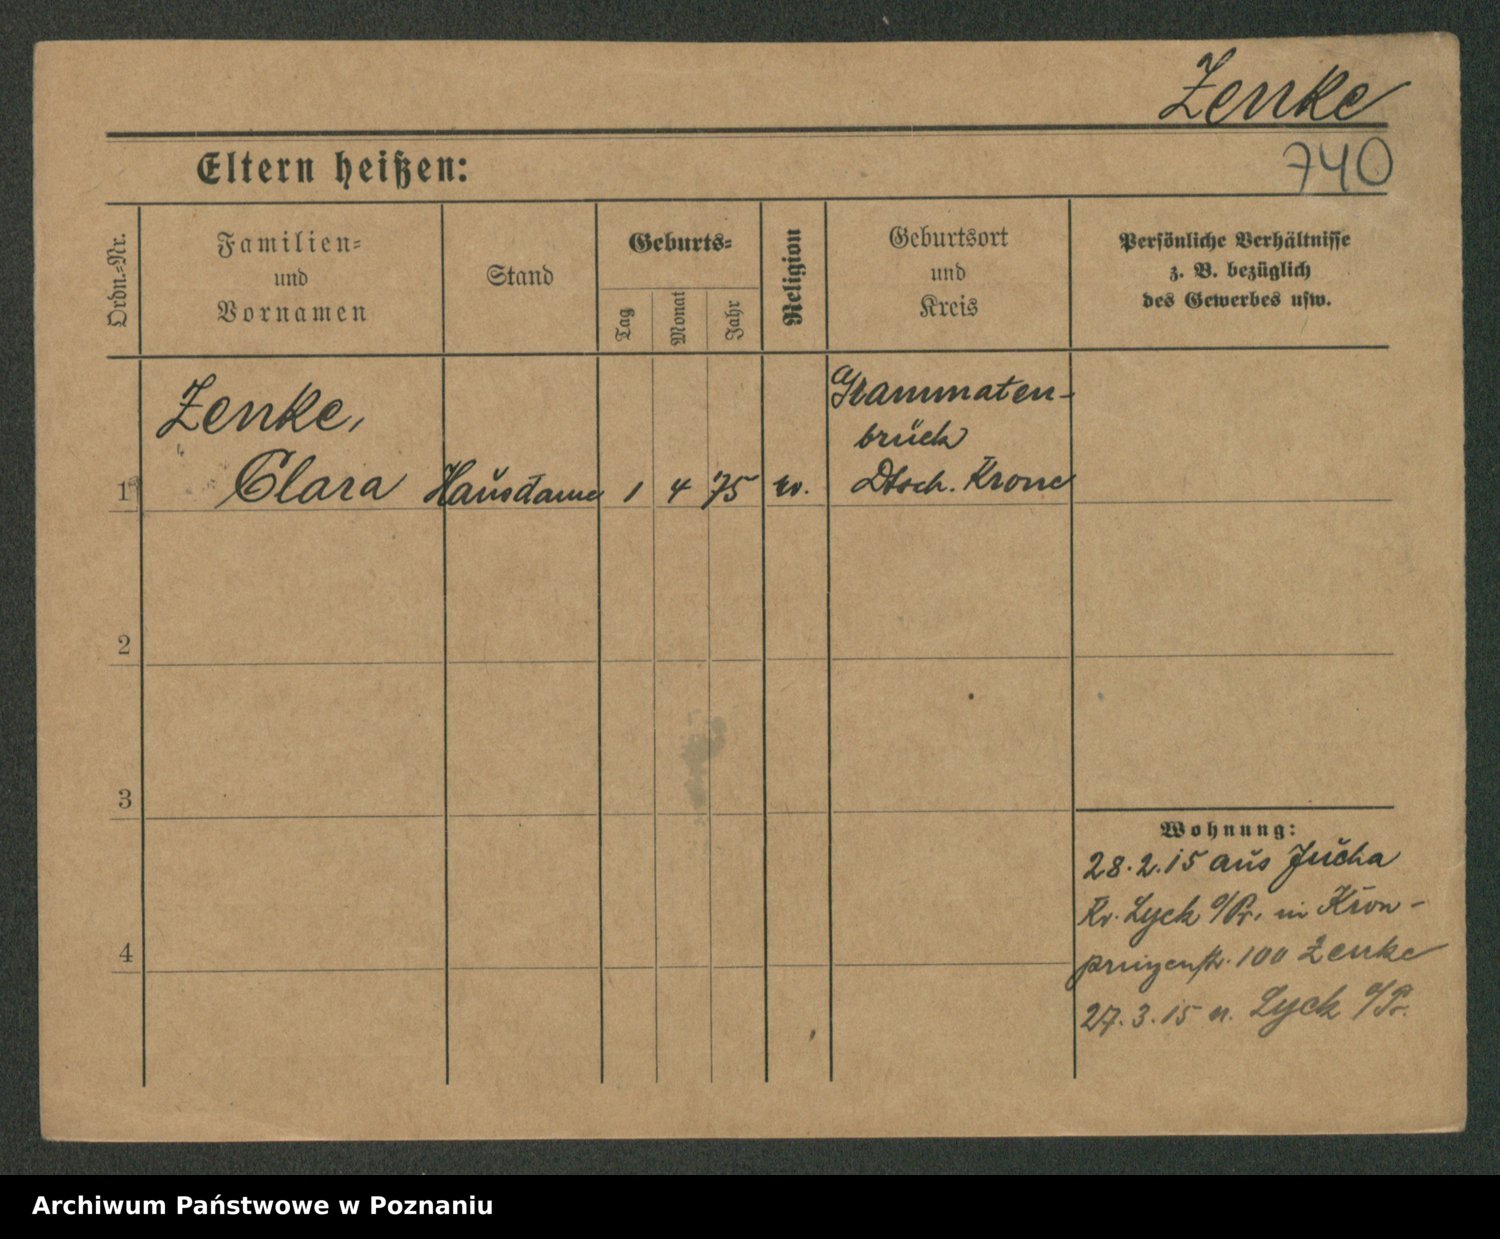 Zenke
Eltern heißen:
740
Ordn.=Nr.
Familien=
und
Vornamen
Stand
Geburts=
Tag
Monat
Jahr
Religion
Geburtsort
und
Kreis
Persönliche Verhältnisse
z. B. bezüglich
des Gewerbes usw.
1
Zenke,
Clara
Hausdame
1
4
75
ev.
Grammaten-
brück
Dtsch. Krone
2
3
4
Wohnung:
28.2.15 aus Jucha
Kr. Lyck O/Pr. in Kron-
prinzenstr. 100 Zenke
27.3.15 n. Lyck O/Pr.
Archiwum Państwowe w Poznaniu